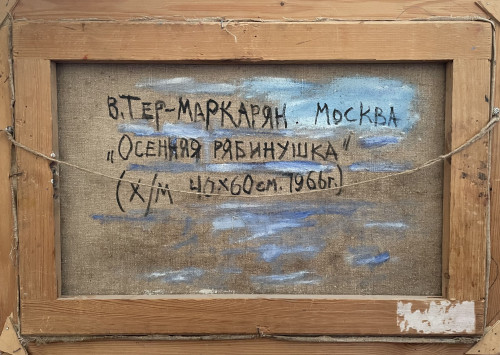 В. ТЕР-МАРКАРЯН. МОСКВА
„ОСЕННЯЯ РЯБИНУШКА"
(Х/М 45х60 см. 1966г.)